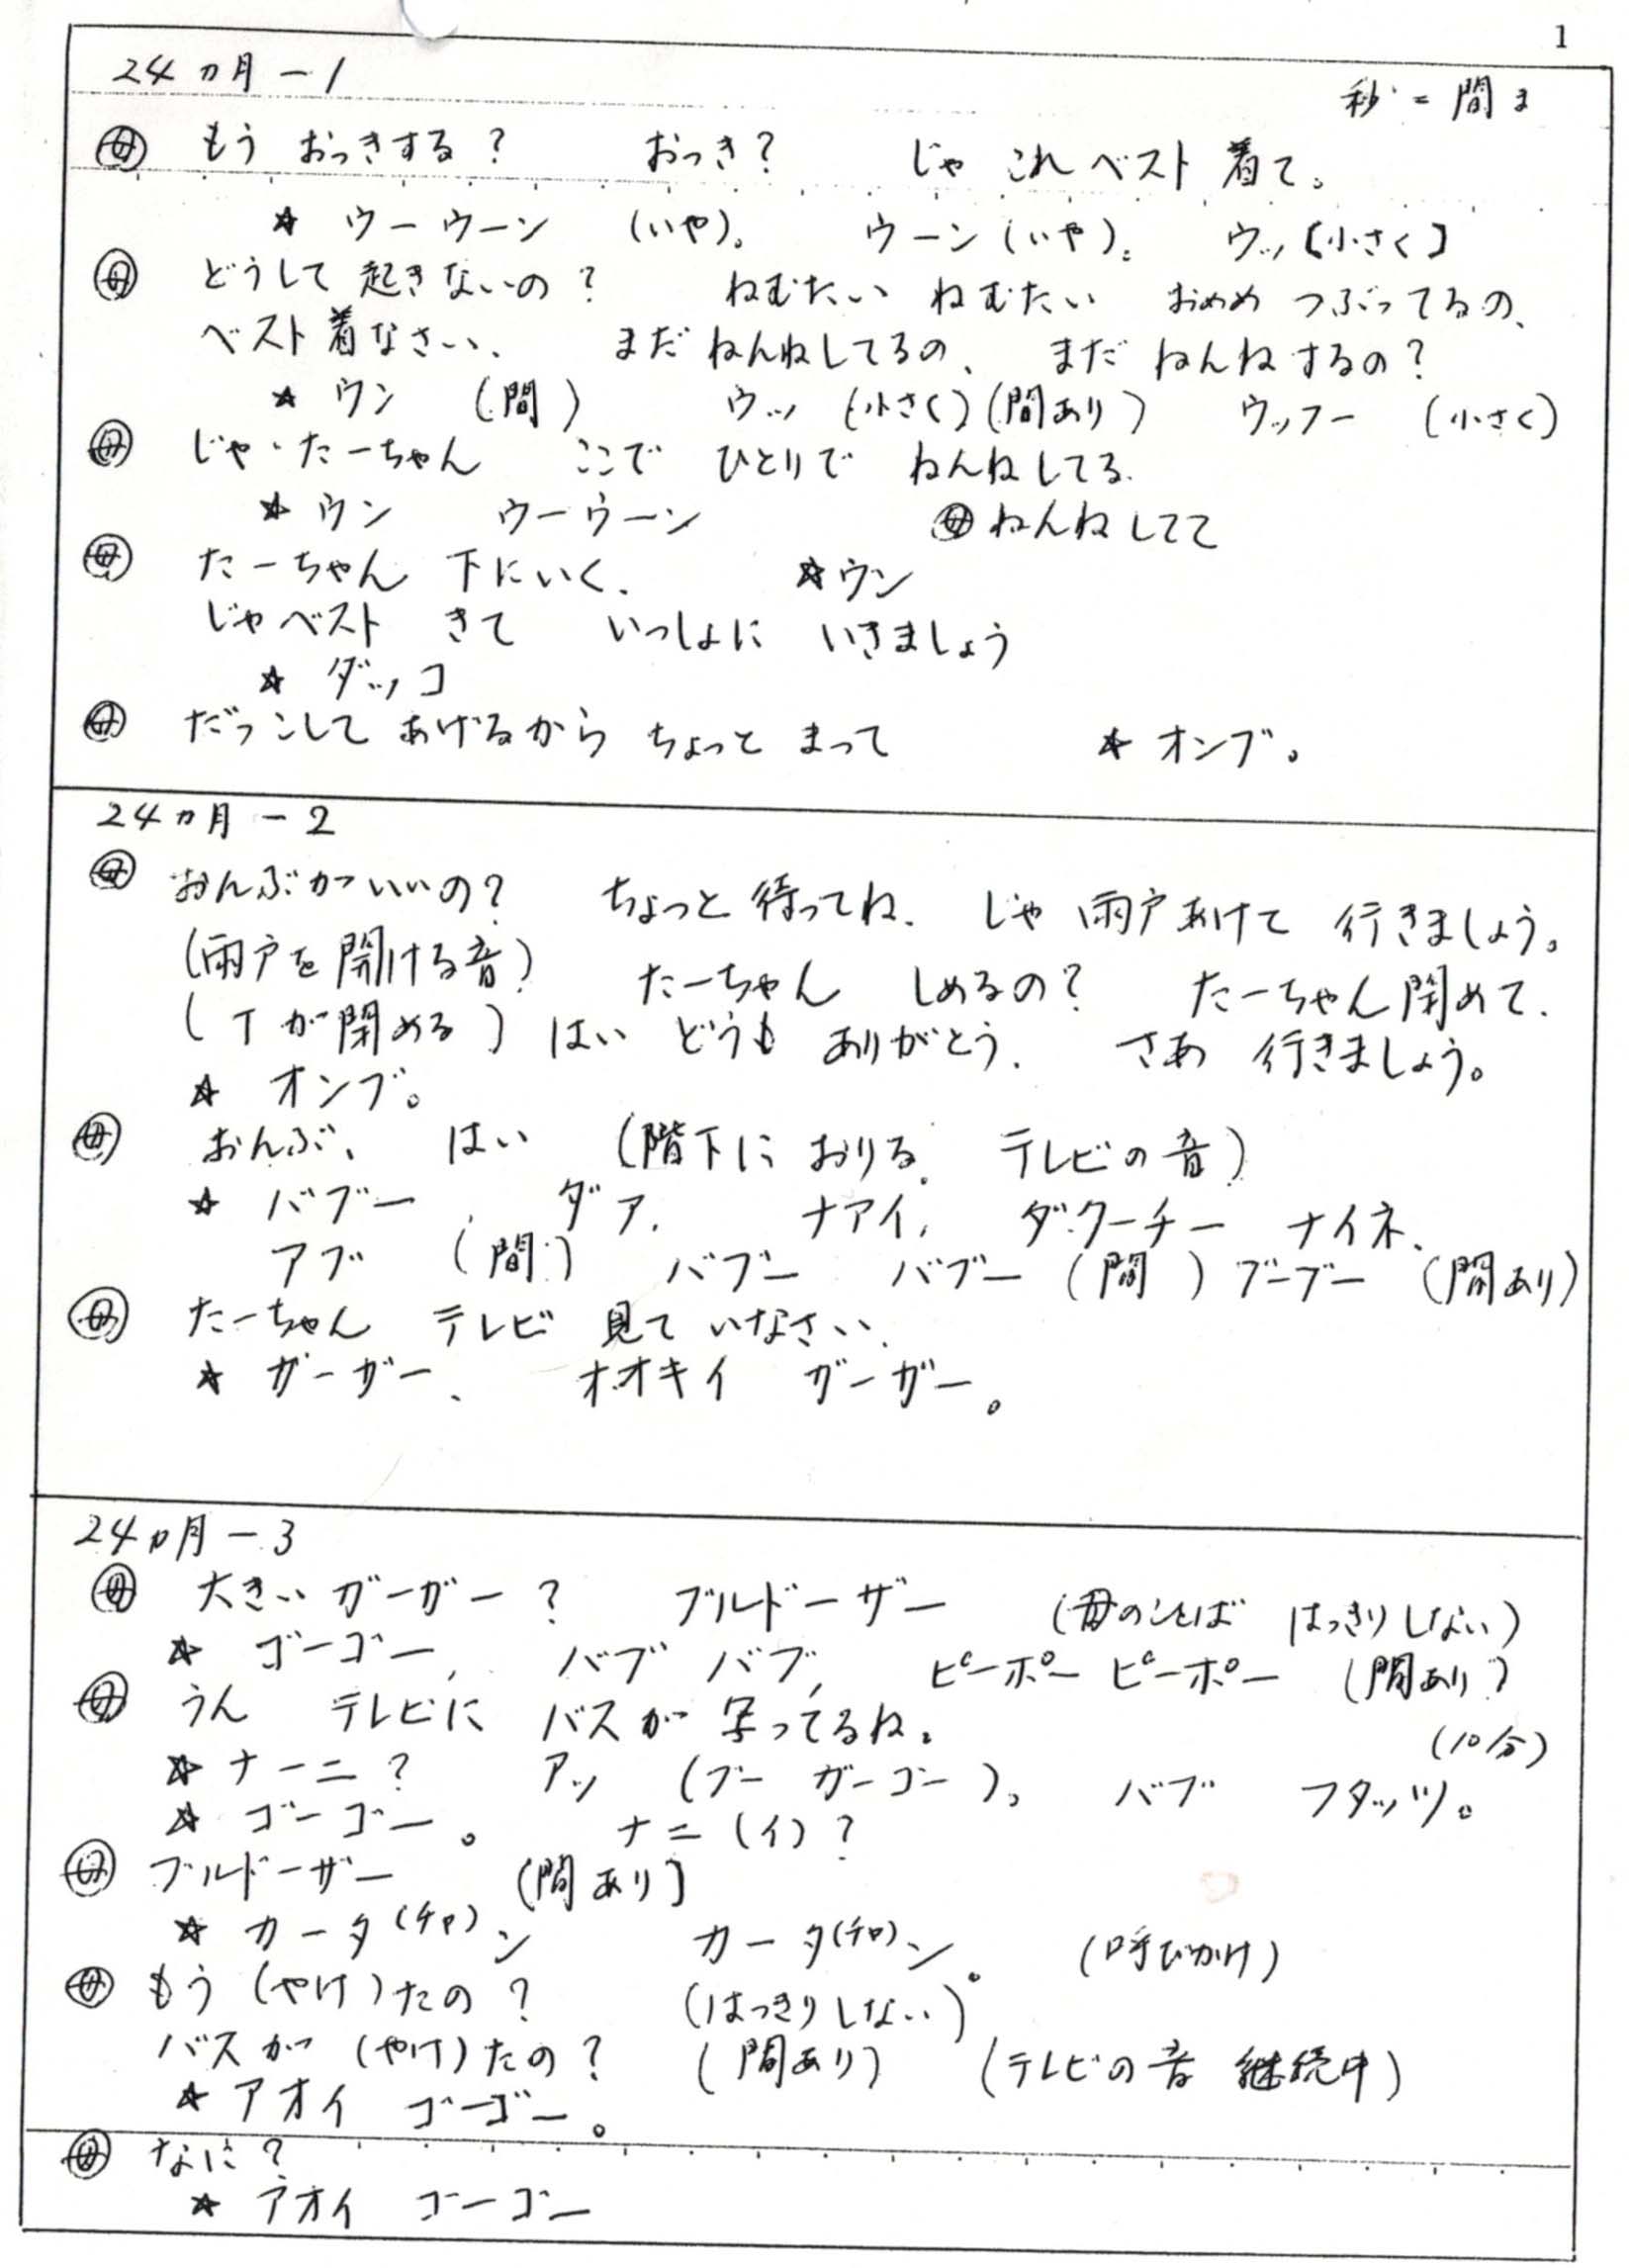 1
24ヵ月－1
秒＝間ま
㊊ もう おっきする？ おっき？ じゃ これ ベスト 着て。
☆ ウーウーン （いや）。 ウーン（いや）。 ウッ【小さく】
㊊ どうして 起きないの？ ねむたい ねむたい おめめ つぶってるの、
ベスト着なさい、 まだ ねんねしてるの、 まだ ねんねするの？
☆ ウン （間） ウッ （小さく）（間あり） ウッフー （小さく）
㊊ じゃ・たーちゃん ここで ひとりで ねんねしてる.
☆ ウン ウーウーン ㊊ ねんねしてて
㊊ たーちゃん 下にいく. ☆ウン
じゃベスト きて いっしょに いきましょう
☆ ダッコ
㊊ だっこして あげるから ちょっと まって ☆ オンブ。
24ヵ月－2
㊊ おんぶがいいの？ ちょっと待ってね. じゃ 雨戸あけて 行きましょう。
（雨戸を開ける音） たーちゃん しめるの？ たーちゃん閉めて.
（Tが閉める） はい どうも ありがとう. さあ 行きましょう。
☆ オンブ。
㊊ おんぶ、 はい （階下に おりる。 テレビの音）
☆ バブー、 ダァ, ナアイ, ダクーチー ナイネ、
アブ （間） バブー バブー（間）ブーブー （間あり）
㊊ たーちゃん テレビ 見て いなさい、
☆ ガーガー、 オオキイ ガーガー。
24ヵ月－3
㊊ 大きい ガーガー？ ブルドーザー （母のことば はっきりしない）
☆ ゴーゴー, バブ バブ, ピーポー ピーポー （間あり）
㊊ うん テレビに バスが 写ってるね。
（10分）
☆ ナーニ？ アッ （ブー ガーゴー）。 バブ フタッツ。
☆ ゴーゴー。 ナニ（イ）？
㊊ ブルドーザー （間あり）
☆ カータ（チャ）ン カータ（チャ）ン。 （呼びかけ）
㊊ もう（やけ）たの？ （はっきりしない）
バスが （やけ）たの？ （間あり） （テレビの音 継続中）
☆ アオイ ゴーゴー。
㊊ なに？
☆ アオイ ゴーゴー